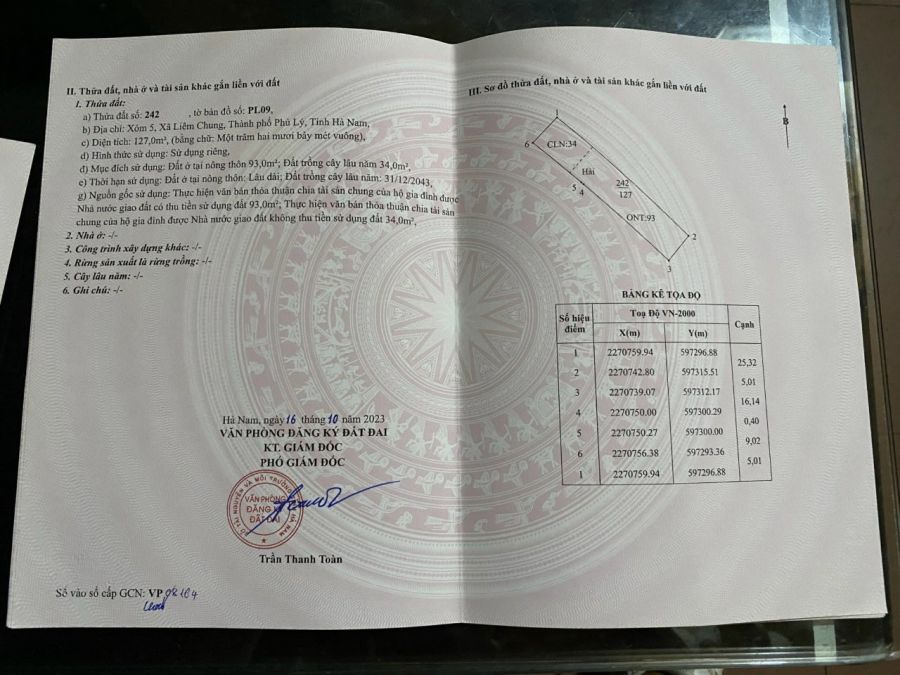 II. Thửa đất, nhà ở và tài sản khác gắn liền với đất
1. Thửa đất:
a) Thửa đất số: 242 , tờ bản đồ số: PL09,
b) Địa chỉ: Xóm 5, Xã Liêm Chung, Thành phố Phủ Lý, Tỉnh Hà Nam,
c) Diện tích: 127,0m², (bằng chữ: Một trăm hai mươi bảy mét vuông),
d) Hình thức sử dụng: Sử dụng riêng,
đ) Mục đích sử dụng: Đất ở tại nông thôn 93,0m²; Đất trồng cây lâu năm 34,0m²,
e) Thời hạn sử dụng: Đất ở tại nông thôn: Lâu dài; Đất trồng cây lâu năm: 31/12/2043,
g) Nguồn gốc sử dụng: Thực hiện văn bản thỏa thuận chia tài sản chung của hộ gia đình được
Nhà nước giao đất có thu tiền sử dụng đất 93,0m²; Thực hiện văn bản thỏa thuận chia tài sản
chung của hộ gia đình được Nhà nước giao đất không thu tiền sử dụng đất 34,0m²,
2. Nhà ở: -/-
3. Công trình xây dựng khác: -/-
4. Rừng sản xuất là rừng trồng: -/-
5. Cây lâu năm: -/-
6. Ghi chú: -/-
Hà Nam, ngày 16 tháng 10 năm 2023
VĂN PHÒNG ĐĂNG KÝ ĐẤT ĐAI
KT. GIÁM ĐỐC
PHÓ GIÁM ĐỐC
SỞ TÀI NGUYÊN VÀ MÔI TRƯỜNG HÀ NAM
VĂN PHÒNG
ĐĂNG KÝ
ĐẤT ĐAI
Trần Thanh Toàn
Số vào sổ cấp GCN: VP 08164
III. Sơ đồ thửa đất, nhà ở và tài sản khác gắn liền với đất
B
1
6
CLN:34
Hải
5
4
242
127
ONT:93
2
3
BẢNG KÊ TỌA ĐỘ
Số hiệu điểm Toạ Độ VN-2000 Cạnh
X(m) Y(m)
1 2270759.94 597296.88
25,32
2 2270742.80 597315.51
5,01
3 2270739.07 597312.17
16,14
4 2270750.00 597300.29
0,40
5 2270750.27 597300.00
9,02
6 2270756.38 597293.36
5,01
1 2270759.94 597296.88